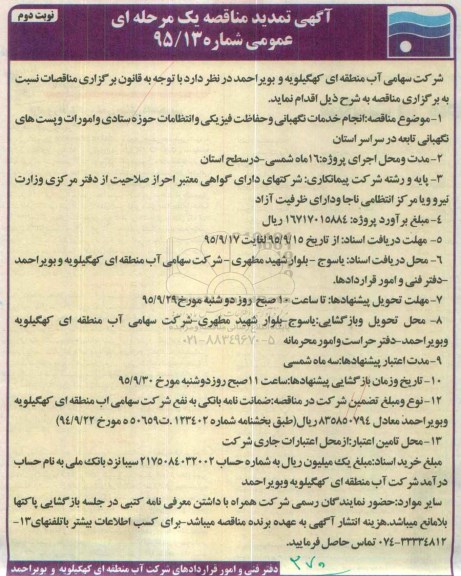 نوبت دوم
آگهی تمدید مناقصه یک مرحله ای
عمومی شماره ۹۵/۱۳
شرکت سهامی آب منطقه ای کهگیلویه و بویراحمد در نظر دارد با توجه به قانون برگزاری مناقصات نسبت
به برگزاری مناقصه به شرح ذیل اقدام نماید.
۱-موضوع مناقصه:انجام خدمات نگهبانی وحفاظت فیزیکی وانتظامات حوزه ستادی وامورات وپست های
نگهبانی تابعه در سراسر استان
۲-مدت ومحل اجرای پروژه:۱۶ماه شمسی-درسطح استان
۳- پایه و رشته شرکت پیمانکاری: شرکتهای دارای گواهی معتبر احراز صلاحیت از دفتر مرکزی وزارت
نیرو ویا مرکز انتظامی ناجا ودارای ظرفیت آزاد
۴-مبلغ برآورد پروژه: ۱۶۷۱۷۰۱۵۸۸۴ ریال
۵- مهلت دریافت اسناد: از تاریخ ۹۵/۹/۱۵ لغایت ۹۵/۹/۱۷
۶- محل دریافت اسناد: یاسوج - بلوار شهید مطهری - شرکت سهامی آب منطقه ای کهگیلویه و بویراحمد
-دفتر فنی و امور قراردادها.
۷-مهلت تحویل پیشنهادها: تا ساعت ۱۰ صبح روز دو شنبه مورخ ۹۵/۹/۲۹
۸- محل تحویل وبازگشایی:یاسوج-بلوار شهید مطهری-شرکت سهامی آب منطقه ای کهگیلویه
وبویراحمد-دفتر حراست وامور محرمانه
۹-مدت اعتبار پیشنهادها:سه ماه شمسی
۱۰-تاریخ وزمان بازگشایی پیشنهادها:ساعت ۱۱صبح روزدوشنبه مورخ ۹۵/۹/۳۰
۱۲-نوع ومبلغ تضمین شرکت در مناقصه:ضمانت نامه بانکی به نفع شرکت سهامی اب منطقه ای کهگیلویه
وبویراحمد معادل ۸۳۵۸۵۰۷۹۴ ریال(طبق بخشنامه شماره ۱۲۳۴۰۲.ت۵۰۶۵۹ه مورخ ۹۴/۹/۲۲)
۱۳-محل تامین اعتبار:ازمحل اعتبارات جاری شرکت
مبلغ خرید اسناد:مبلغ یک میلیون ریال به شماره حساب ۲۱۷۵۰۸۴۰۳۲۰۰۲ سیبا نزد بانک ملی به نام حساب
درآمد شرکت آب منطقه ای کهگیلویه وبویراحمد
سایر موارد:حضور نمایندگان رسمی شرکت همراه با داشتن معرفی نامه کتبی در جلسه بازگشایی پاکتها
بلامانع میباشد.هزینه انتشار آگهی به عهده برنده مناقصه میباشد-برای کسب اطلاعات بیشتر باتلفنهای۱۳-
۰۷۴-۳۳۳۳۴۸۱۲ تماس حاصل فرمایید.
دفتر فنی و امور قراردادهای شرکت آب منطقه ای کهگیلویه و بویراحمد
۰۲۱-۸۸۳۴۹۶۷۰-۵